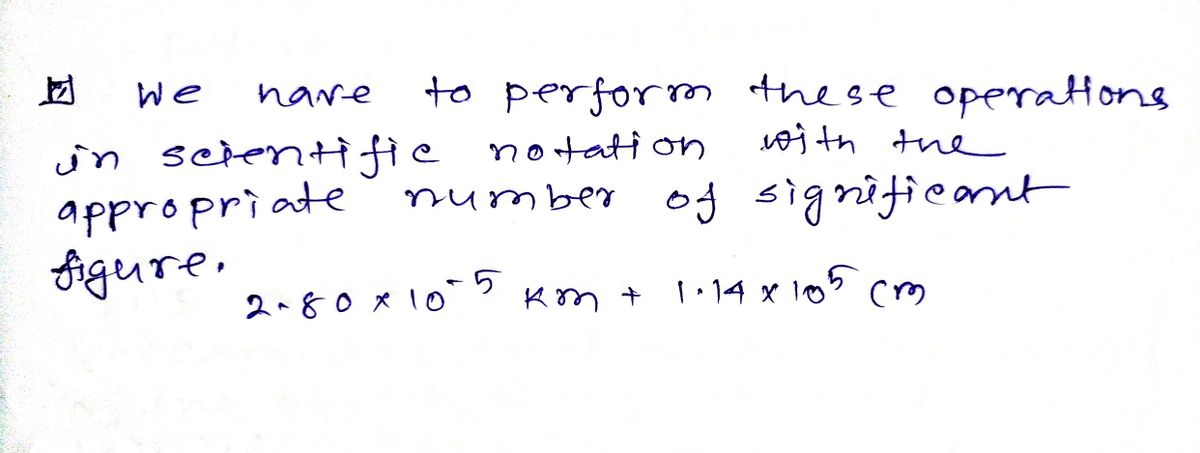 We have to perform these operations
in scientific notation with the
appropriate number of significant
figure.
2.80 x 10⁻⁵ Km + 1.14 x 10⁵ cm